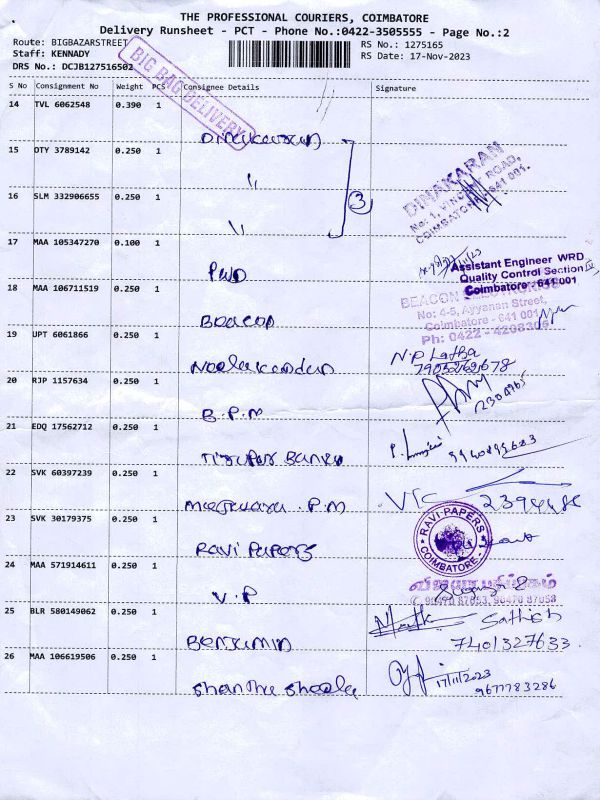 THE PROFESSIONAL COURIERS, COIMBATORE
Delivery Runsheet - PCT - Phone No.:0422-3505555 - Page No.:2
Route: BIGBAZARSTREET
RS No.: 1275165
Staff: KENNADY
RS Date: 17-Nov-2023
DRS No.: DCJB127516502
BIG BAG DELIVERY
S No Consignment No Weight PCS Consignee Details Signature
14 TVL 6062548 0.390 1
Dinakaran
15 DTY 3789142 0.250 1
"
DINAKARAN
No: 1,
COIMBATORE - 641 001.
16 SLM 332906655 0.250 1
"
3
17 MAA 105347270 0.100 1
PWD
Assistant Engineer WRD
Quality Control Section
Coimbatore - 641 001
18 MAA 106711519 0.250 1
Beacon
BEACON
No: 4-5, Ayyanan Street,
Coimbatore - 641 001
Ph: 0422 -
19 UPT 6061866 0.250 1
Neelakandan
N.P Latha
20 RJP 1157634 0.250 1
B.P.M
21 EDQ 17562712 0.250 1
Tirupur
22 SVK 60397239 0.250 1
P.M
VTC 2394486
23 SVK 30179375 0.250 1
Ravi Papers
RAVI PAPERS
COIMBATORE
24 MAA 571914611 0.250 1
V.P
விஜயா பதிப்பகம்
90470 87053, 90470 87058
25 BLR 580149062 0.250 1
Benjamin
Sathish
7401327633
26 MAA 106619506 0.250 1
Shantha Sheela
17/11/2023
9677783286